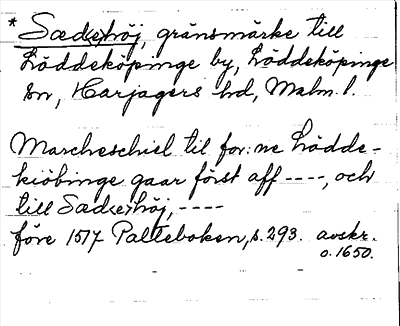 * Sæd(e)höj, gränsmärke till
Löddeköpinge by, Löddeköpinge
sn, Harjagers hd, Malm. l.
Marcheschiel til for:ne Lödde-
kiöbinge gaar först aff ----, och
till Sæd(e)höj, ----
före 1517 Palteboken, s. 293. avskr.
o. 1650.